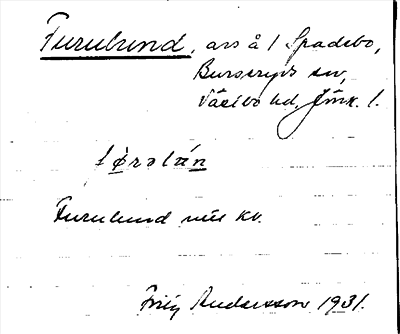 Furulund, avs å 1 Spadebo,
Burseryds sn,
Västbo hd, Jönk. l.
Furulund kv.
Fritz Andersson 1931.